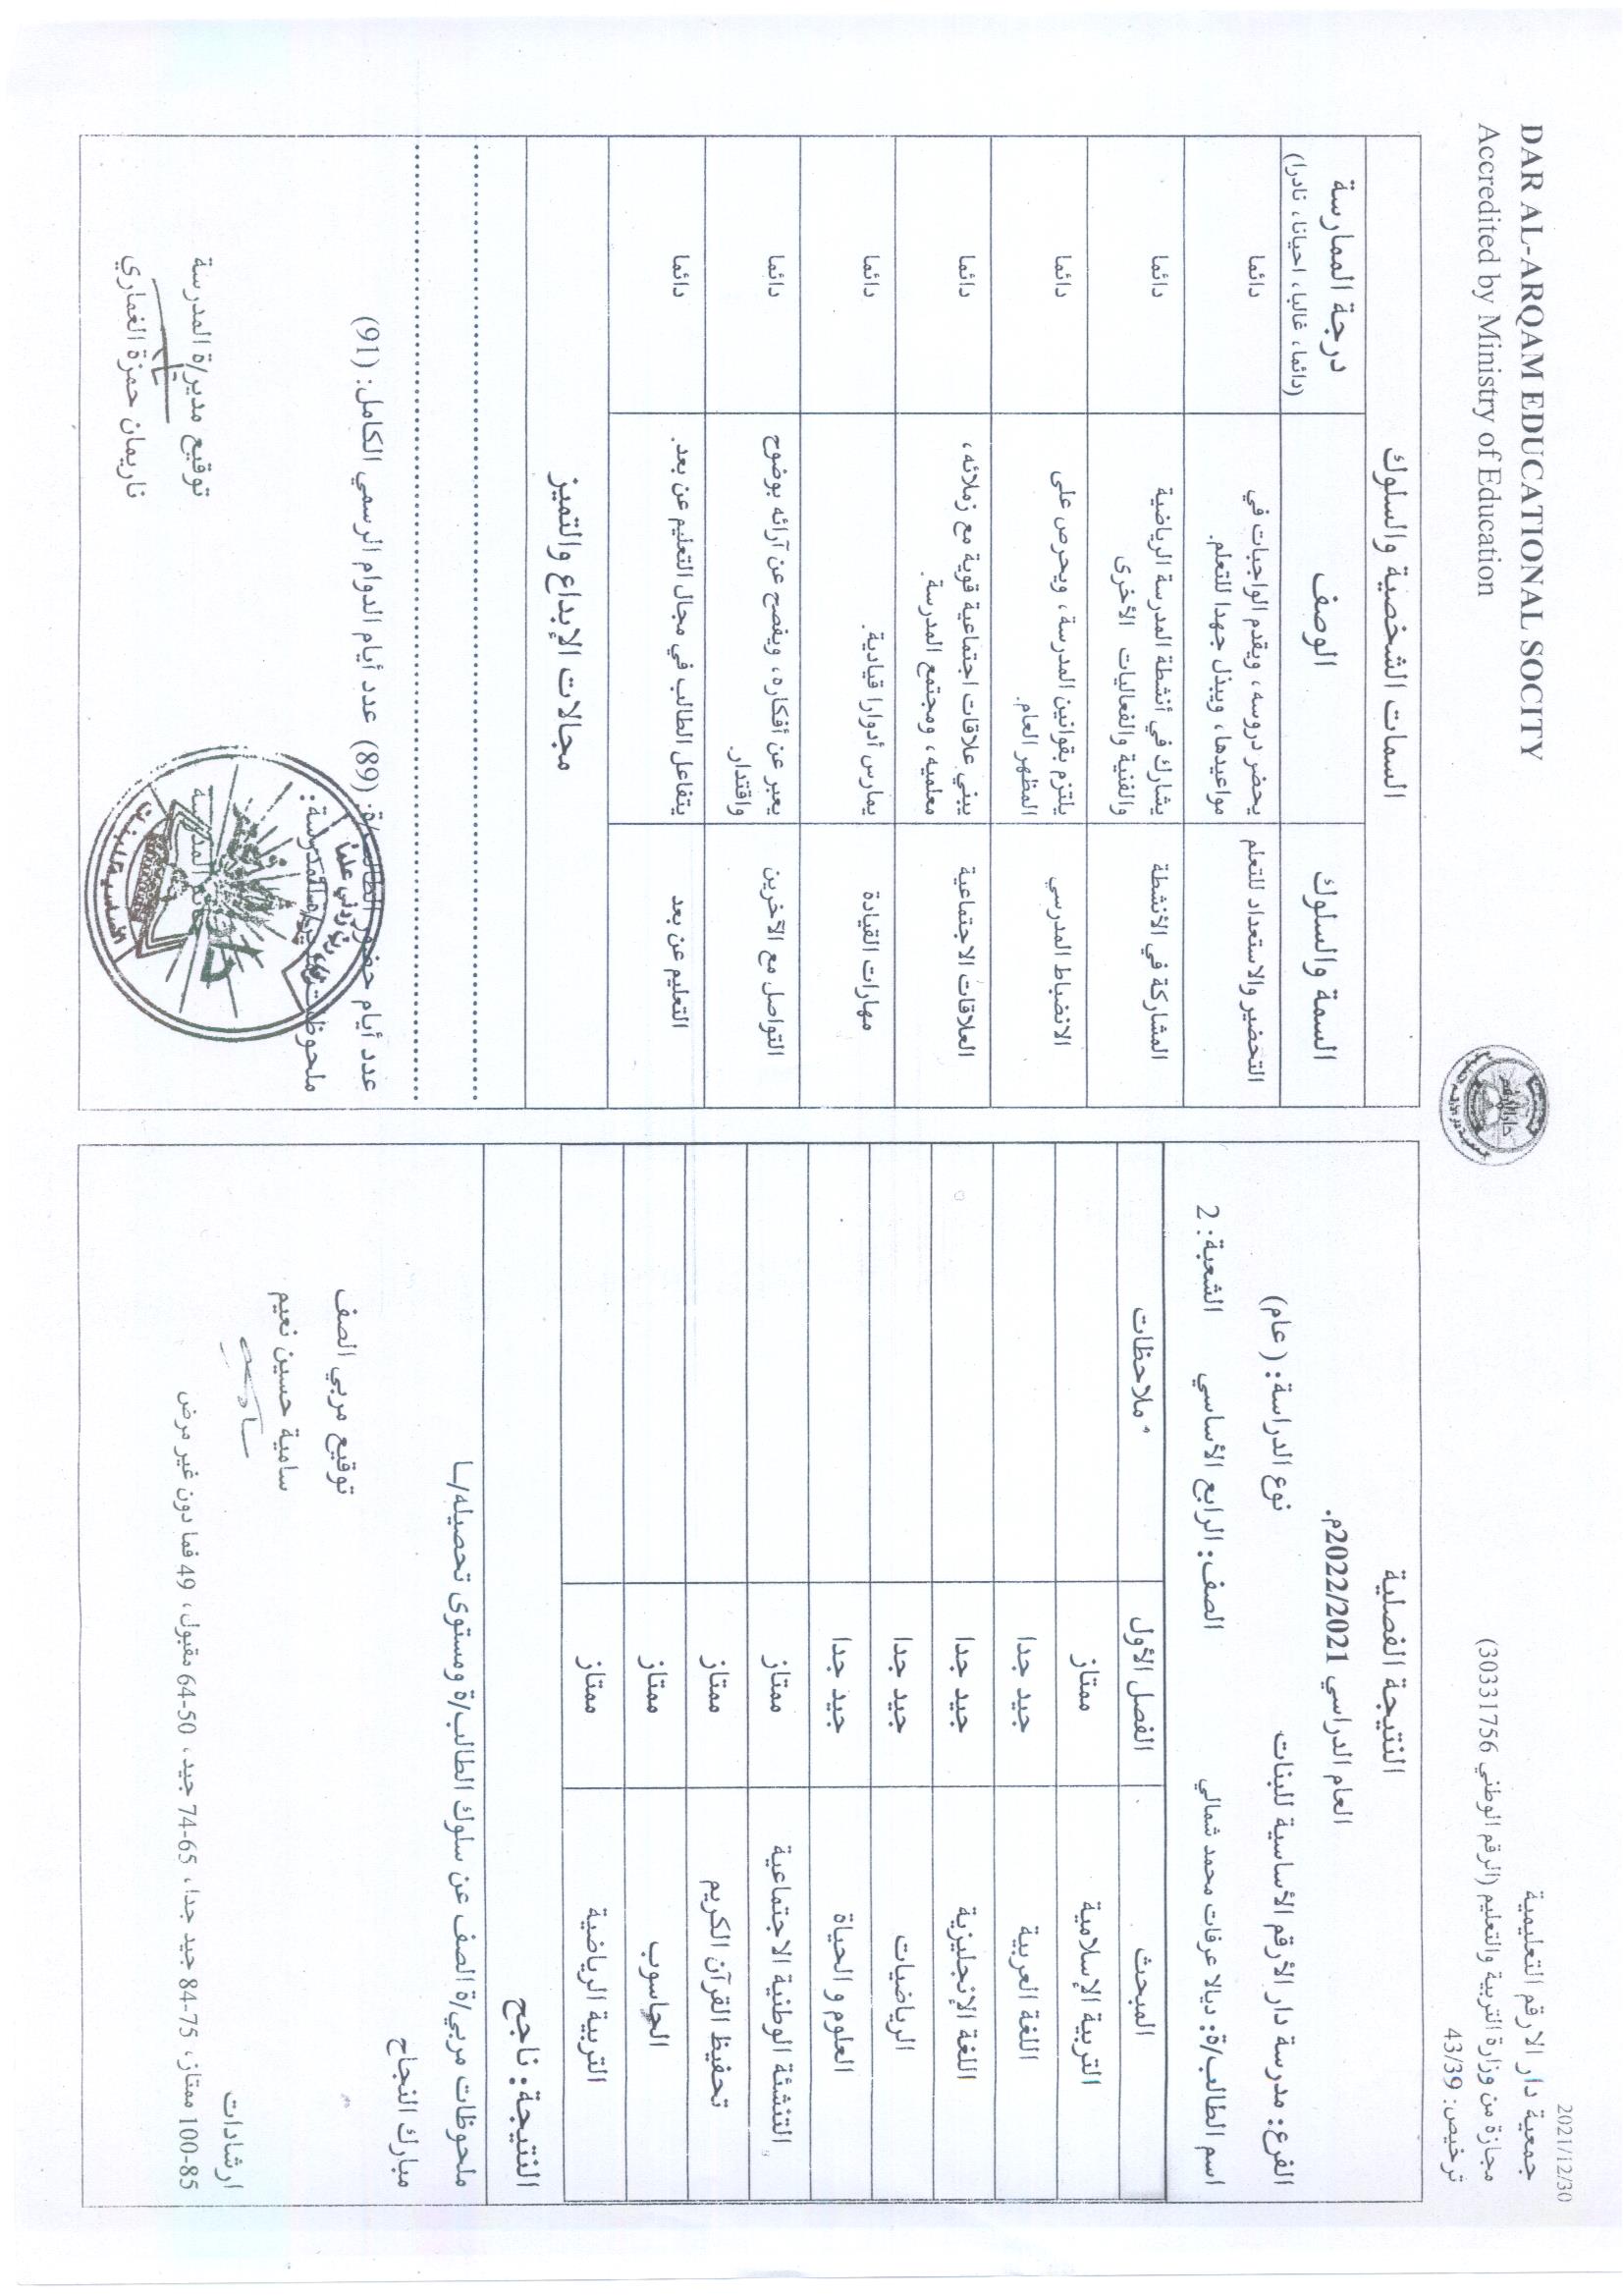 2021/12/30
جمعية دار الارقم التعليمية
مجازة من وزارة التربية والتعليم (الرقم الوطني 30331756)
ترخيص: 43/39
DAR AL-ARQAM EDUCATIONAL SOCITY
Accredited by Ministry of Education
النتيجة الفصلية
العام الدراسي 2022/2021م.
الفرع: مدرسة دار الأرقم الأساسية للبنات نوع الدراسة: (عام)
اسم الطالب/ة: ديالا عرفات محمد شمالي الصف: الرابع الأساسي الشعبة: 2
المبحث الفصل الأول ملاحظات
التربية الإسلامية ممتاز
اللغة العربية جيد جدا
اللغة الإنجليزية جيد جدا
الرياضيات جيد جدا
العلوم و الحياة جيد جدا
التنشئة الوطنية الاجتماعية ممتاز
تحفيظ القرآن الكريم ممتاز
الحاسوب ممتاز
التربية الرياضية ممتاز
النتيجة: ناجح
ملحوظات مربي/ة الصف عن سلوك الطالب/ة ومستوى تحصيله/ـا
مبارك النجاح
توقيع مربي الصف
سامية حسين نعيم
ارشادات
100-85 ممتاز، 84-75 جيد جدا، 74-65 جيد، 64-50 مقبول، 49 فما دون غير مرض
السمات الشخصية والسلوك
السمة والسلوك الوصف درجة الممارسة
(دائما، غالبا، احيانا، نادرا)
التحضير والاستعداد للتعلم يحضر دروسه، ويقدم الواجبات في دائما
مواعيدها، ويبذل جهدا للتعلم.
المشاركة في الأنشطة يشارك في أنشطة المدرسة الرياضية دائما
والفنية والفعاليات الأخرى
الانضباط المدرسي يلتزم بقوانين المدرسة، ويحرص على دائما
المظهر العام.
العلاقات الاجتماعية يبني علاقات اجتماعية قوية مع زملائه، دائما
معلميه، ومجتمع المدرسة.
مهارات القيادة يمارس أدوارا قيادية. دائما
التواصل مع الآخرين يعبر عن أفكاره، ويفصح عن آرائه بوضوح دائما
واقتدار.
التعليم عن بعد يتفاعل الطالب في مجال التعليم عن بعد. دائما
مجالات الإبداع والتميز
عدد أيام حضور الطالب/ة: (89) عدد أيام الدوام الرسمي الكامل: (91)
توقيع مدير/ة المدرسة
ناريمان حمزة الغماري